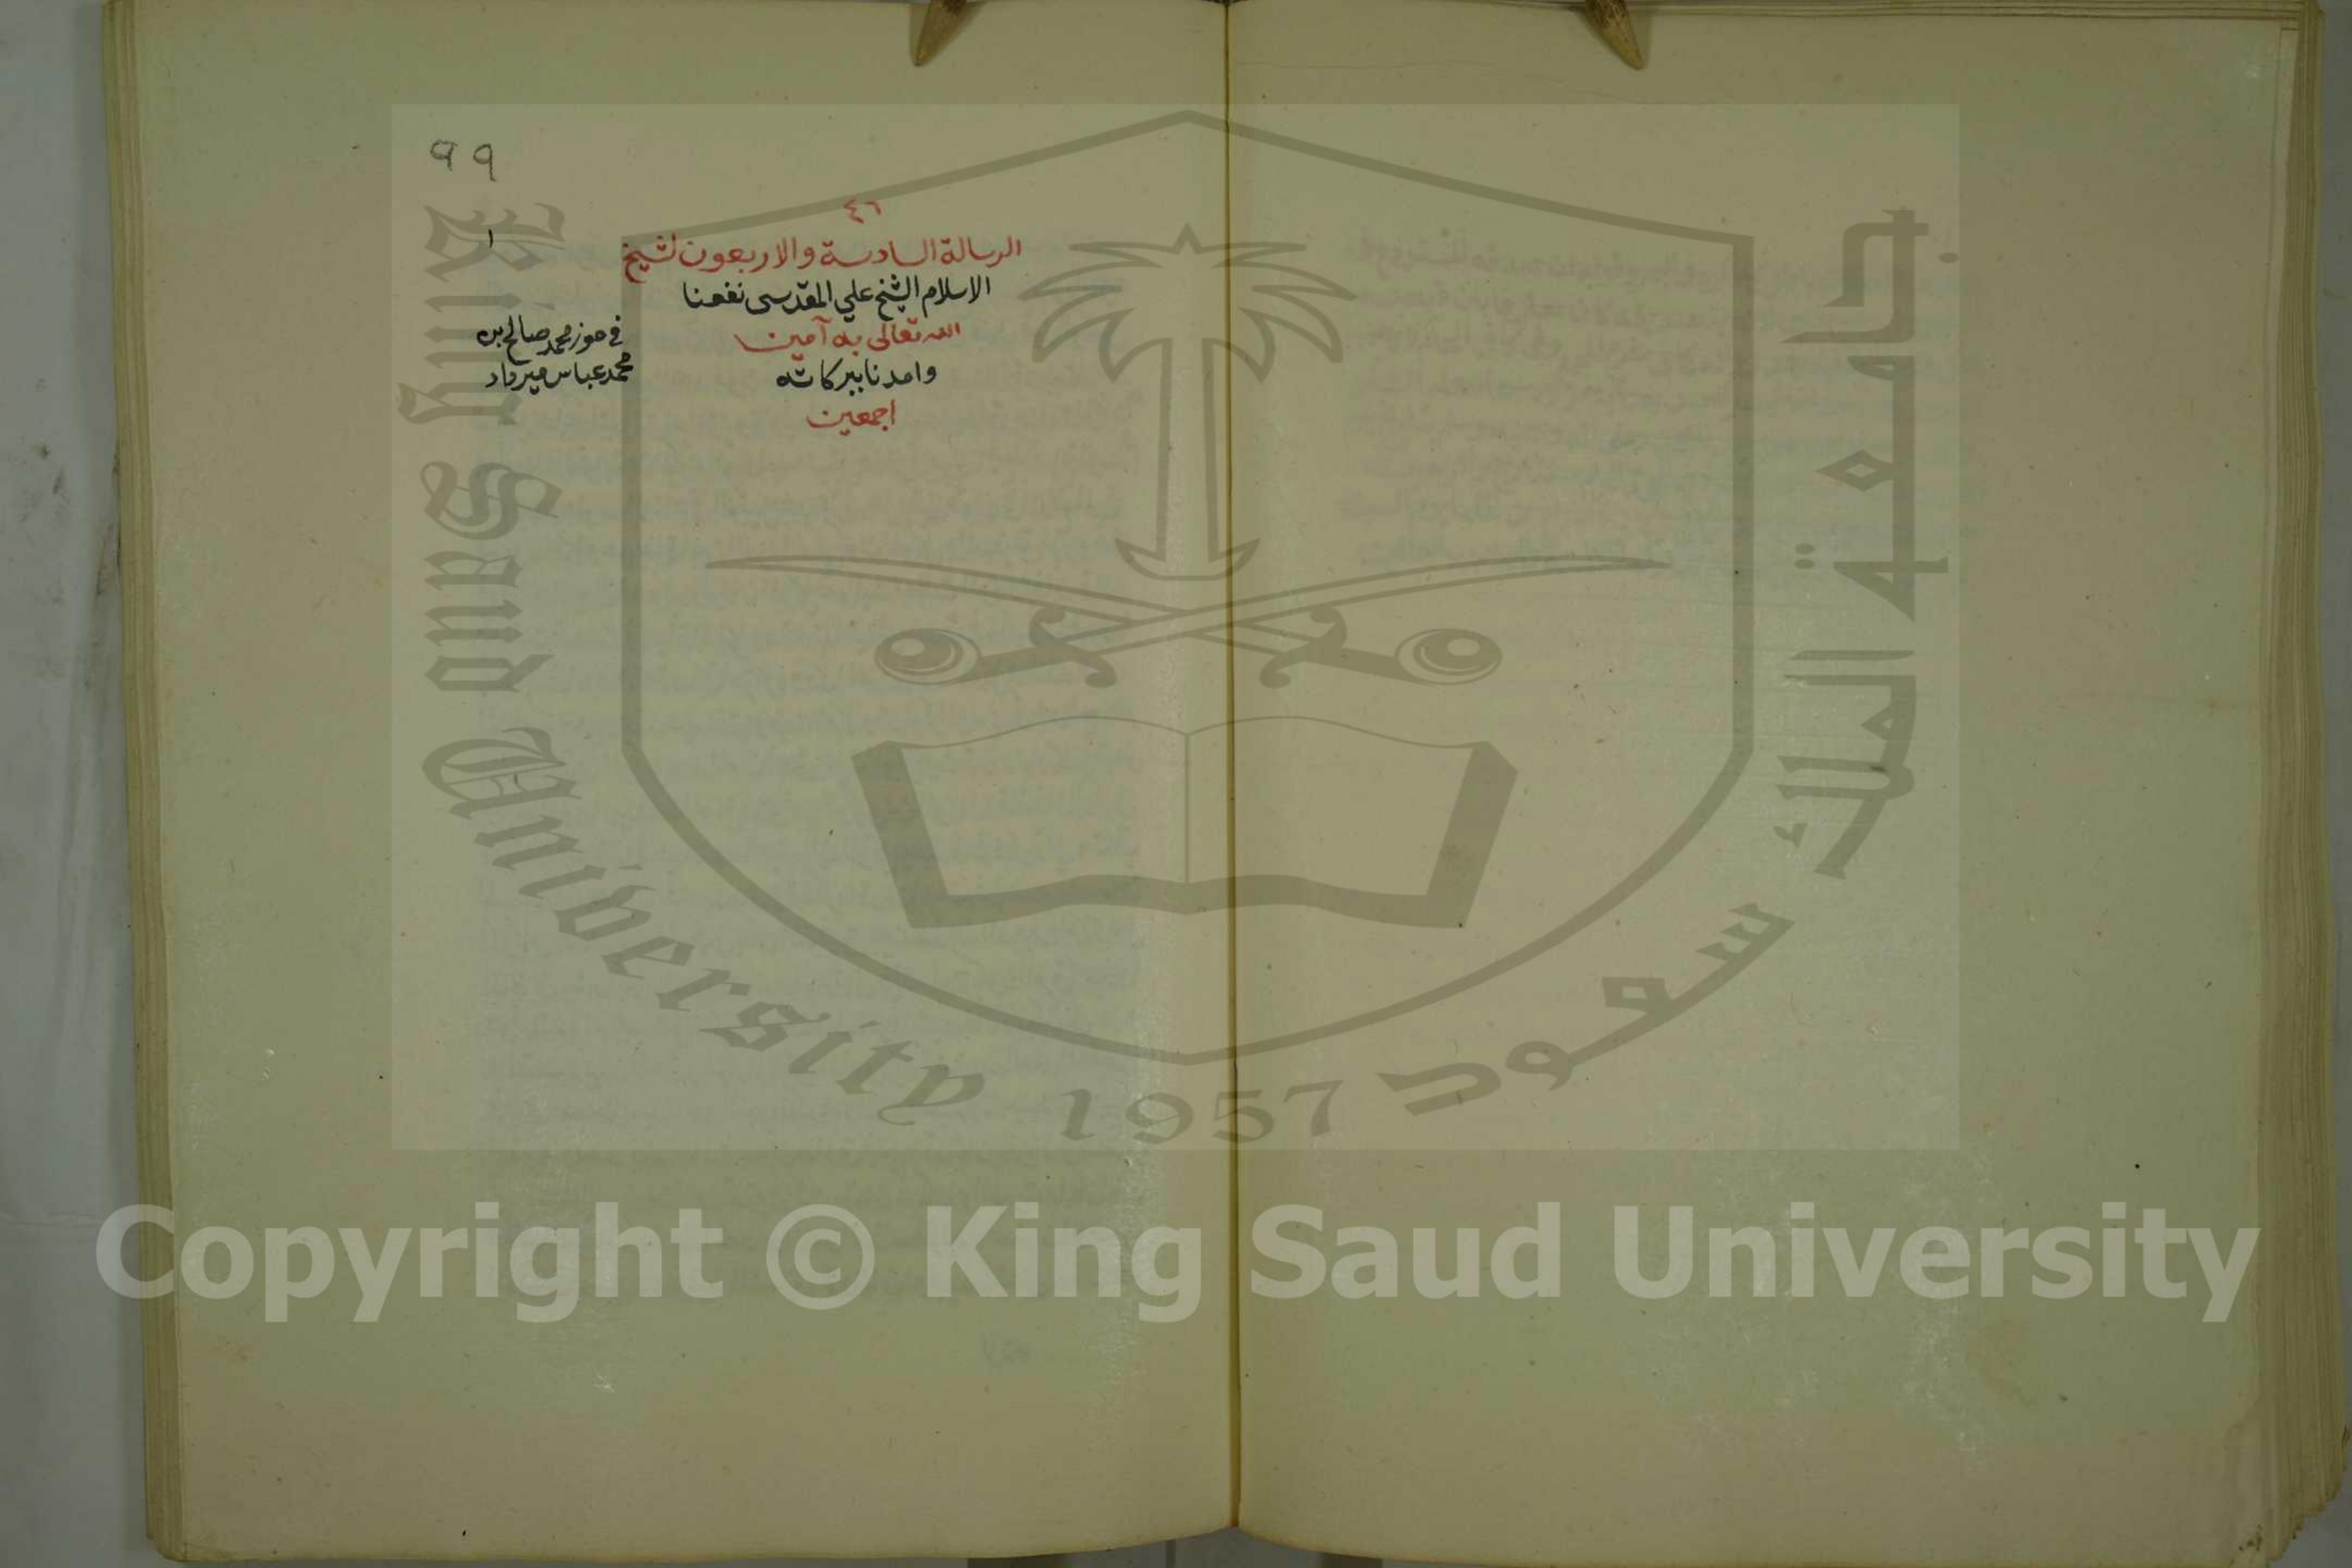 ٩٩
٤٦
١
الرسالة السادسة والاربعون لشيخ
الاسلام الشيخ علي المقدسى نفعنا
الله تعالى به آمين
وامدنا ببركاته
اجمعين
في حوز محمد صالح بن
محمد عباس ميرداد
King Saud University 1957
جامعة الملك سعود
Copyright © King Saud University